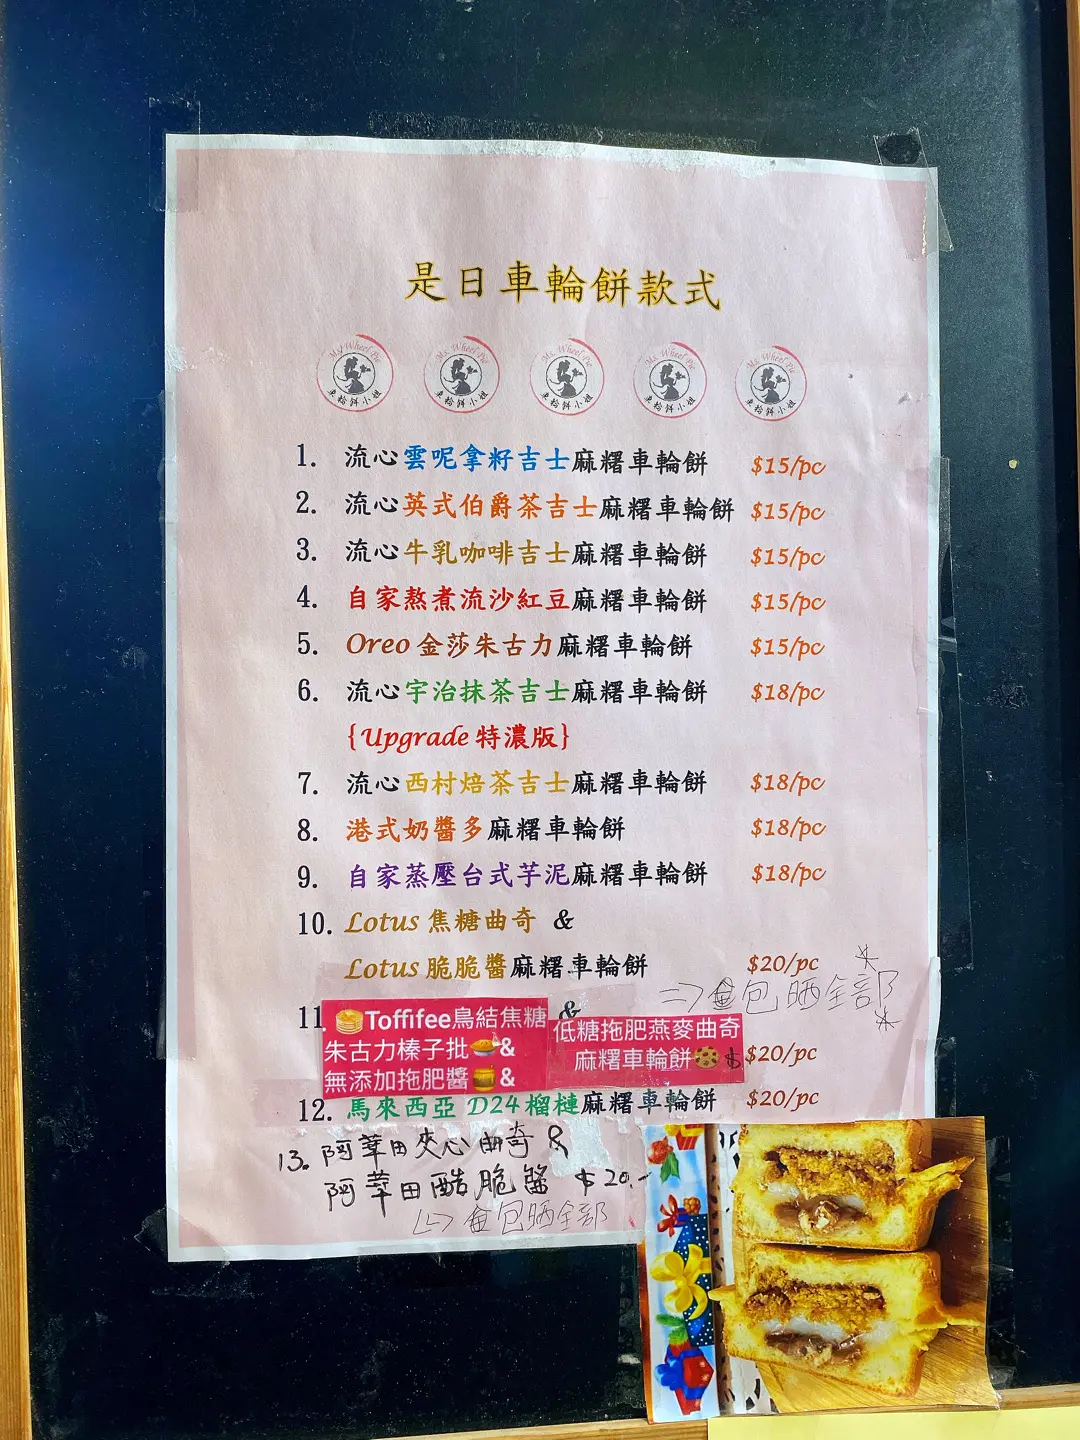 是日車輪餅款式
Ms. Wheel Pie Ms. Wheel Pie Ms. Wheel Pie Ms. Wheel Pie Ms. Wheel Pie
車輪餅小姐 車輪餅小姐 車輪餅小姐 車輪餅小姐 車輪餅小姐
1. 流心雲呢拿籽吉士麻糬車輪餅 $15/pc
2. 流心英式伯爵茶吉士麻糬車輪餅 $15/pc
3. 流心牛乳咖啡吉士麻糬車輪餅 $15/pc
4. 自家熬煮流沙紅豆麻糬車輪餅 $15/pc
5. Oreo金莎朱古力麻糬車輪餅 $15/pc
6. 流心宇治抹茶吉士麻糬車輪餅 $18/pc
{Upgrade特濃版}
7. 流心西村焙茶吉士麻糬車輪餅 $18/pc
8. 港式奶醬多麻糬車輪餅 $18/pc
9. 自家蒸壓台式芋泥麻糬車輪餅 $18/pc
10. Lotus焦糖曲奇 &
Lotus脆脆醬麻糬車輪餅 $20/pc
=> 包晒全部
11 Toffifee鳥結焦糖 &
朱古力榛子批 &
無添加拖肥醬 &
低糖拖肥燕麥曲奇
麻糬車輪餅 $ $20/pc
12. 馬來西亞 D24榴槤麻糬車輪餅 $20/pc
13. 阿華田夾心曲奇 &
阿華田酷脆醬 $20.-
包晒全部